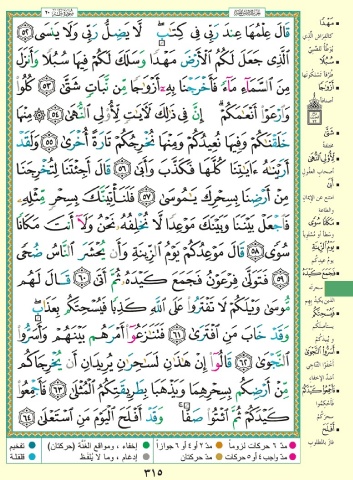 قَالَ عِلْمُهَا عِندَ رَبِّي فِي كِتَٰبٍ لَّا يَضِلُّ رَبِّي وَلَا يَنسَى ٥٢
ٱلَّذِي جَعَلَ لَكُمُ ٱلْأَرْضَ مَهْدًا وَسَلَكَ لَكُمْ فِيهَا سُبُلًا وَأَنزَلَ
مِنَ ٱلسَّمَآءِ مَآءً فَأَخْرَجْنَا بِهِۦٓ أَزْوَٰجًا مِّن نَّبَاتٍ شَتَّىٰ ٥٣ كُلُوا۟
وَٱرْعَوْا۟ أَنْعَٰمَكُمْ إِنَّ فِي ذَٰلِكَ لَءَايَٰتٍ لِّأُو۟لِي ٱلنُّهَىٰ ٥٤ مِنْهَا
خَلَقْنَٰكُمْ وَفِيهَا نُعِيدُكُمْ وَمِنْهَا نُخْرِجُكُمْ تَارَةً أُخْرَىٰ ٥٥ وَلَقَدْ
أَرَيْنَٰهُ ءَايَٰتِنَا كُلَّهَا فَكَذَّبَ وَأَبَىٰ ٥٦ قَالَ أَجِئْتَنَا لِتُخْرِجَنَا
مِنْ أَرْضِنَا بِسِحْرِكَ يَٰمُوسَىٰ ٥٧ فَلَنَأْتِيَنَّكَ بِسِحْرٍ مِّثْلِهِۦ
فَٱجْعَلْ بَيْنَنَا وَبَيْنَكَ مَوْعِدًا لَّا نُخْلِفُهُۥ نَحْنُ وَلَآ أَنتَ مَكَانًا
سُوًى ٥٨ قَالَ مَوْعِدُكُمْ يَوْمُ ٱلزِّينَةِ وَأَن يُحْشَرَ ٱلنَّاسُ ضُحًى
٥٩ فَتَوَلَّىٰ فِرْعَوْنُ فَجَمَعَ كَيْدَهُۥ ثُمَّ أَتَىٰ ٦٠ قَالَ لَهُم
مُّوسَىٰ وَيْلَكُمْ لَا تَفْتَرُوا۟ عَلَى ٱللَّهِ كَذِبًا فَيُسْحِتَكُم بِعَذَابٍ
وَقَدْ خَابَ مَنِ ٱفْتَرَىٰ ٦١ فَتَنَٰزَعُوٓا۟ أَمْرَهُم بَيْنَهُمْ وَأَسَرُّوا۟
ٱلنَّجْوَىٰ ٦٢ قَالُوٓا۟ إِنْ هَٰذَٰنِ لَسَٰحِرَٰنِ يُرِيدَانِ أَن يُخْرِجَاكُم
مِّنْ أَرْضِكُم بِسِحْرِهِمَا وَيَذْهَبَا بِطَرِيقَتِكُمُ ٱلْمُثْلَىٰ ٦٣ فَأَجْمِعُوا۟
كَيْدَكُمْ ثُمَّ ٱئْتُوا۟ صَفًّا وَقَدْ أَفْلَحَ ٱلْيَوْمَ مَنِ ٱسْتَعْلَىٰ ٦٤
مَهْدًا
كالفراش الذي
يوطأ للصبي
سُبُلًا
طرقًا تسلكونها
أَزْوَٰجًا
أصنافًا
شَتَّىٰ
مختلفة
لِأُو۟لِي ٱلنُّهَىٰ
أصحاب العقول
أَبَىٰ
امتنع عن الإيمان
والطاعة
مَكَانًا سُوًى
وسطًا أو مستويًا
يَوْمُ ٱلزِّينَةِ
يوم عيدكم
فَجَمَعَ كَيْدَهُۥ
فَيُسْحِتَكُم
وَأَسَرُّوا۟ ٱلنَّجْوَىٰ
فَأَجْمِعُوا۟ كَيْدَكُمْ
أَفْلَحَ
فاز بالمطلوب
مدّ ٦ حركات لزومًا
مدّ ٢ أو ٤ أو ٦ جوازًا
إخفاء ، ومواقع الغُنَّة (حركتان)
تفخيم
مدّ واجب ٤ أو ٥ حركات
مدّ حركتان
إدغام ، وما لا يُلفَظ
قلقلة
٣١٥